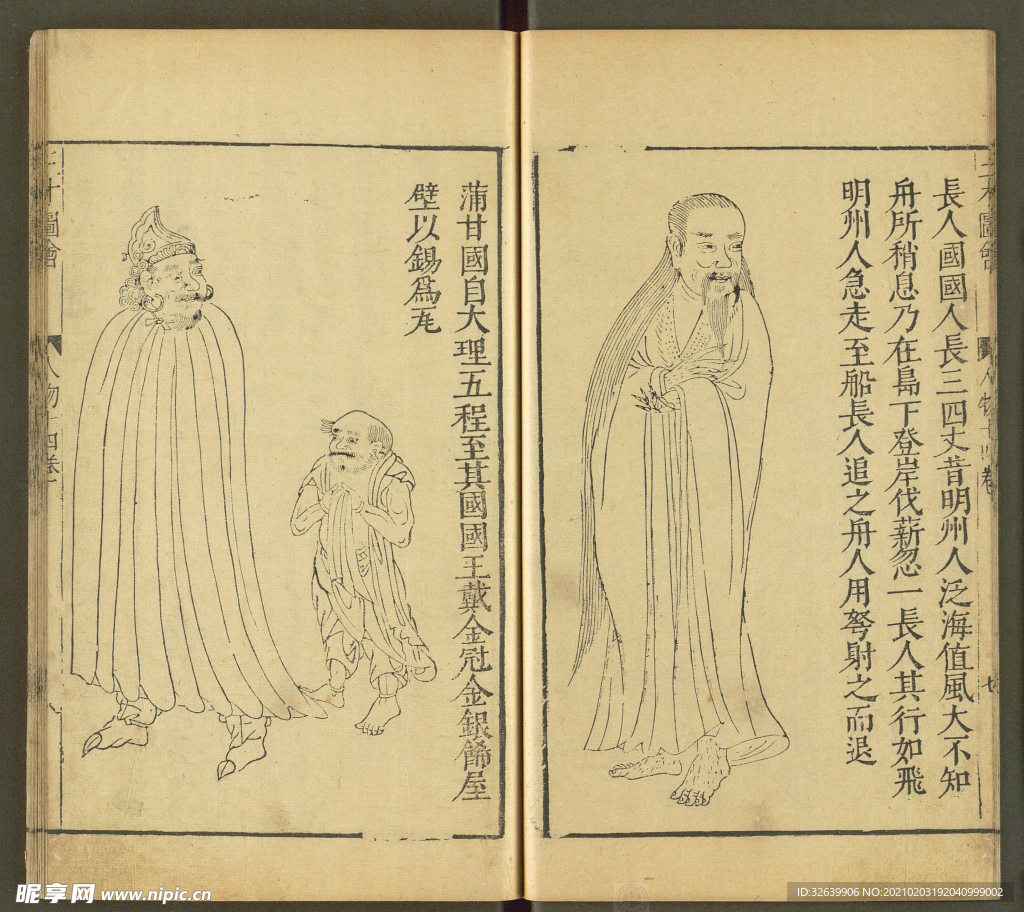 長人國國人長三四丈昔明州人泛海值風大不知
舟所稍息乃在島下登岸伐薪忽一長人其行如飛
明州人急走至船長人追之舟人用弩射之而退
蒲甘國自大理五程至其國國王戴金冠金銀餙屋
壁以錫為瓦
圖會
人物十四卷
七
昵享网 www.nipic.cn
ID:32639906 NO:20210203192040999002